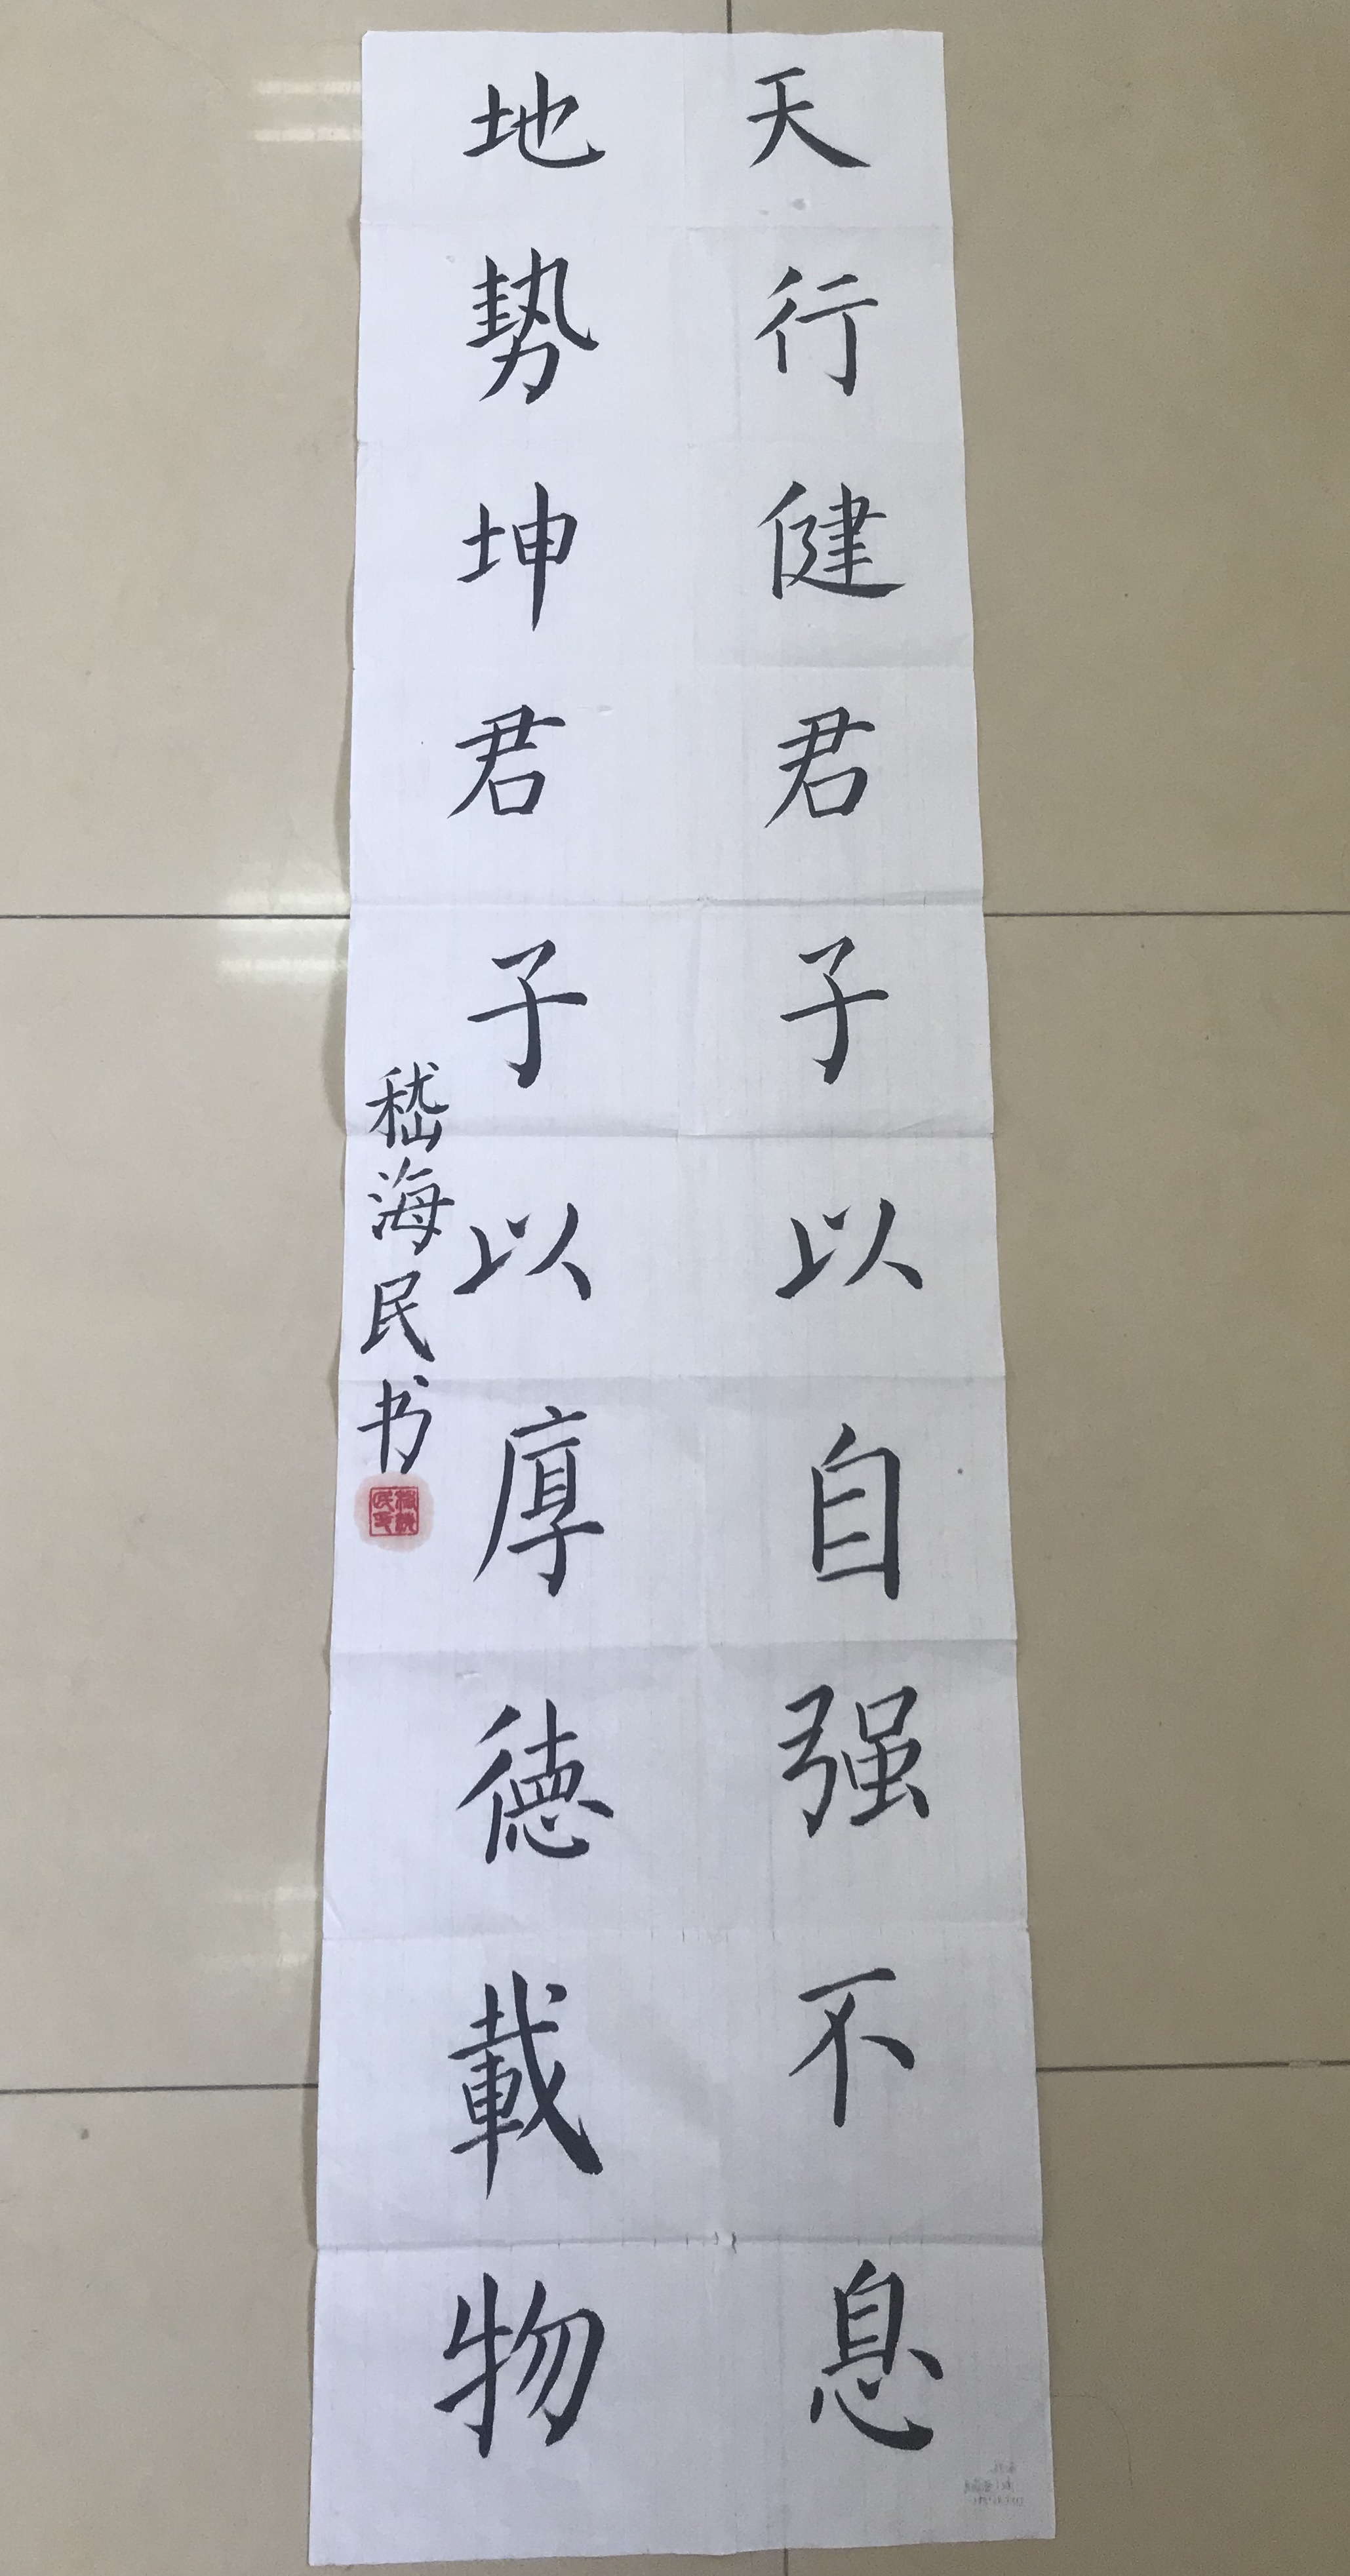 天行健君子以自强不息
地势坤君子以厚德載物
嵇海民书